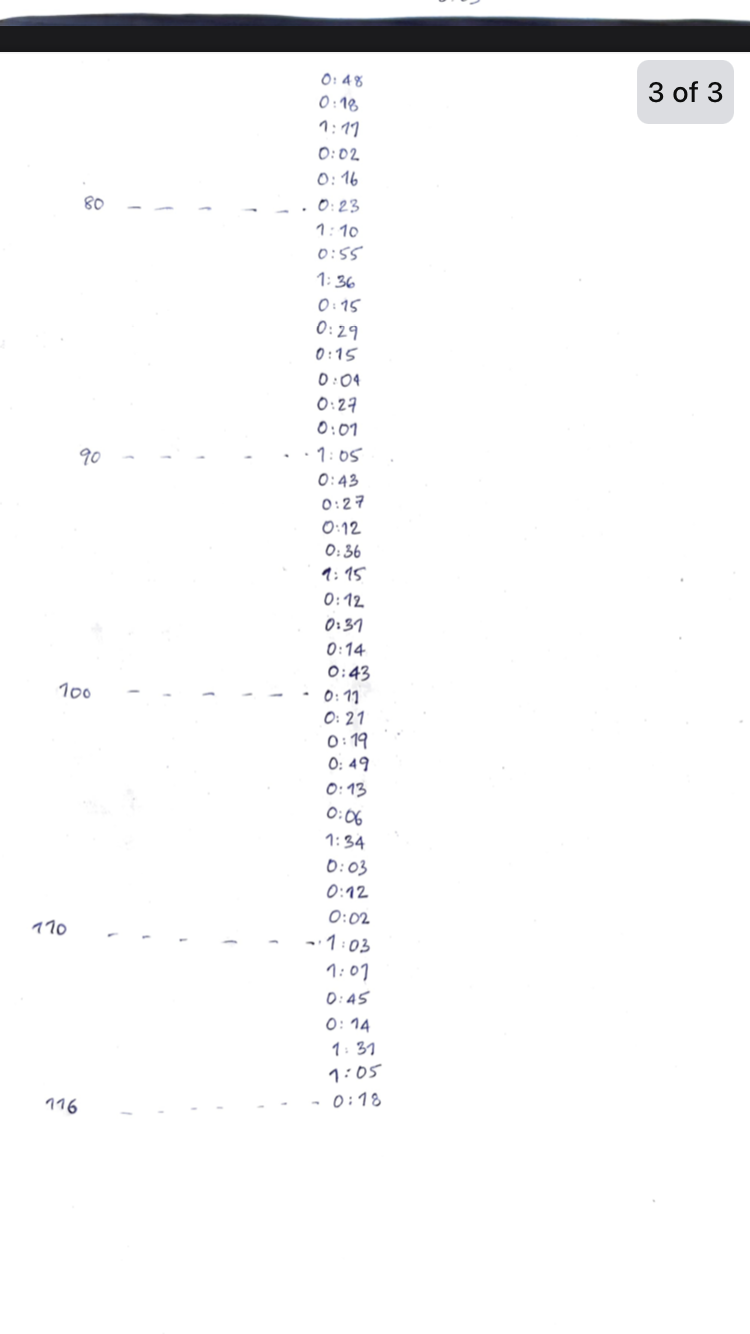 3 of 3
0:48
0:18
1:11
0:02
0:16
80 - - - - - . 0:23
1:10
0:55
1:36
0:15
0:29
0:15
0:04
0:27
0:01
90 - - - - - . 1:05
0:43
0:27
0:12
0:36
1:15
0:12
0:31
0:14
0:43
100 - - - - - - 0:11
0:21
0:19
0:49
0:13
0:06
1:34
0:03
0:12
0:02
110 - - - - - - 1:03
1:01
0:45
0:14
1:31
1:05
116 - - - - - - 0:18